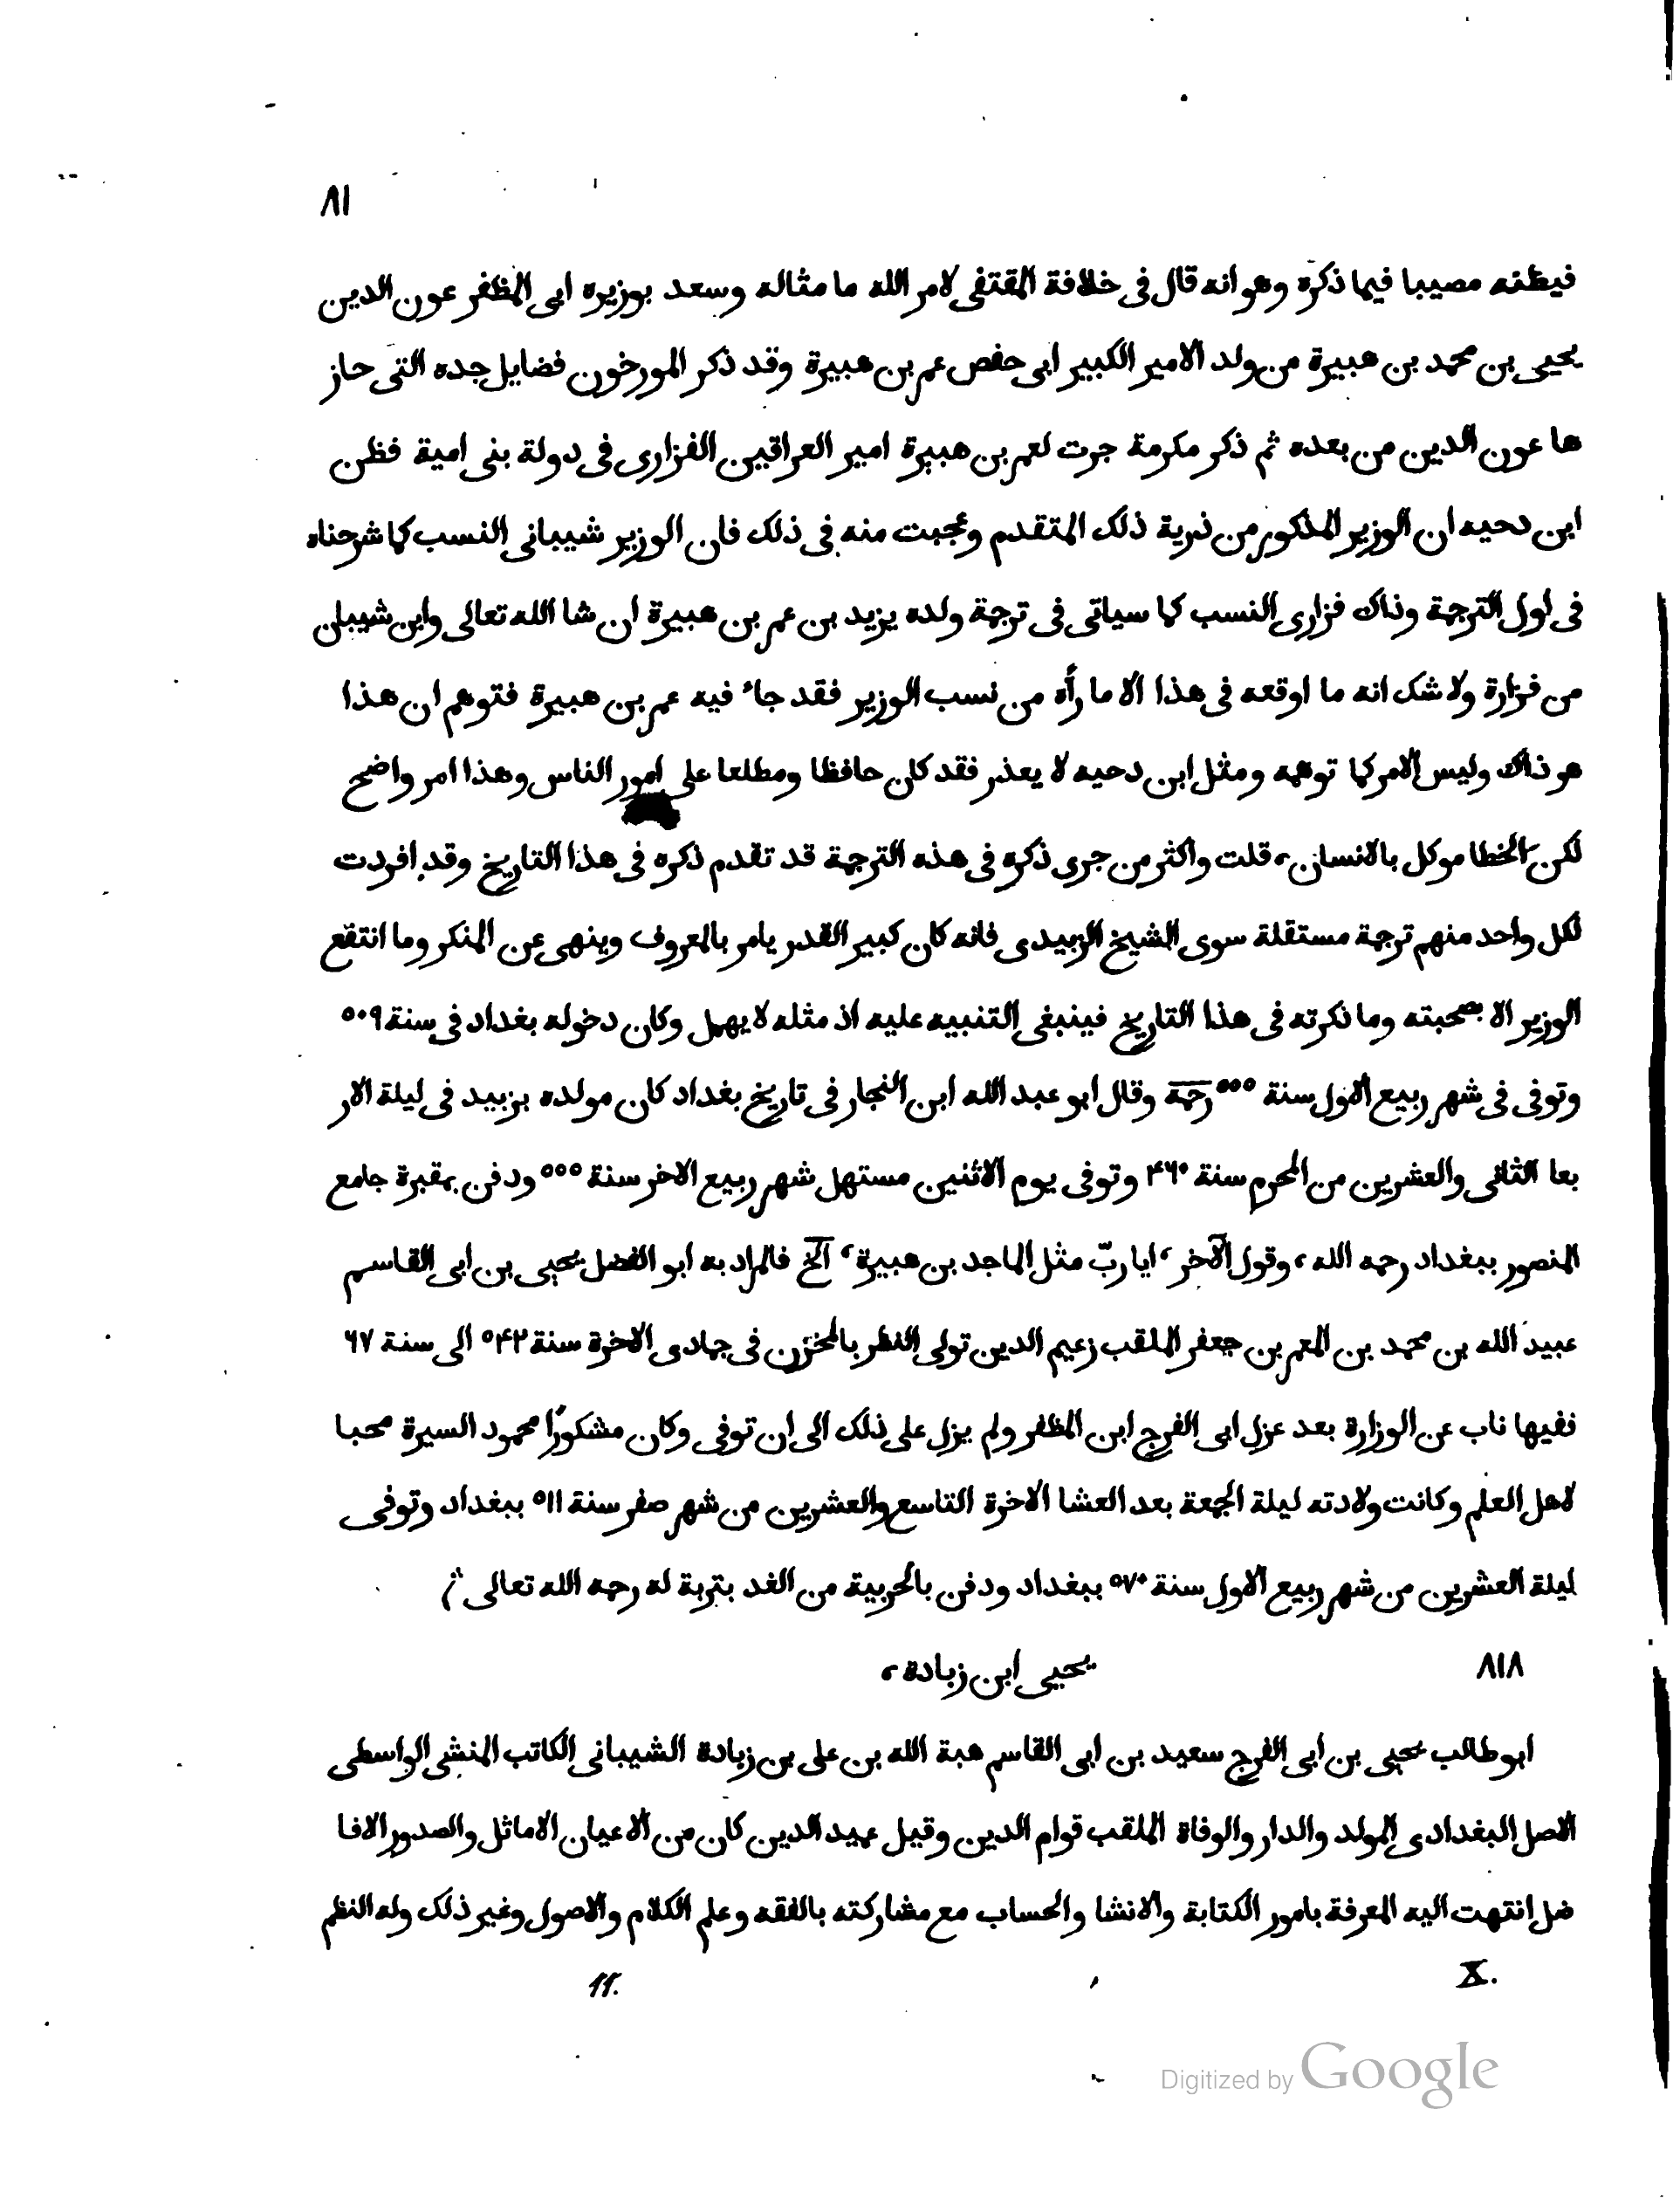 ٨١
فيظنه مصيبا فيما ذكره وهو انه قال فى خلافة المقتفى لامر الله ما مثاله وسعد بوزيره ابى المظفر عون الدين
يحيى بن محمد بن هبيرة من ولد الامير الكبير ابى حفص عمر بن هبيرة وقد ذكر المورخون فضايل جده التى حاز
ها عون الدين من بعده ثم ذكر مكرمة جرت لعمر بن هبيرة امير العراقين الفزارى فى دولة بنى امية فظن
ابن دحيه ان الوزير المذكور من ذرية ذلك المتقدم وعجبت منه فى ذلك فان الوزير شيبانى النسب كما شرحناه
فى اول الترجمة وذاك فزارى النسب كما سياتى فى ترجمة ولده يزيد بن عمر بن هبيرة ان شا الله تعالى واين شيبان
من فزارة ولا شك انه ما اوقعه فى هذا الا ما رأه من نسب الوزير فقد جاء فيه عمر بن هبيرة فتوهم ان هذا
هو ذاك وليس الامر كما توهمه ومثل ابن دحيه لا يعذر فقد كان حافظا ومطلعا على امور الناس وهذا امر واضح
لكن الخطا موكل بالانسان، قلت واكثر من جرى ذكره فى هذه الترجمة قد تقدم ذكره فى هذا التاريخ وقد افردت
لكل واحد منهم ترجمة مستقلة سوى الشيخ الزبيدى فانه كان كبير القدر يامر بالمعروف وينهى عن المنكر وما انتفع
الوزير الا بصحبته وما ذكرته فى هذا التاريخ فينبغى التنبيه عليه اذ مثله لا يهمل وكان دخوله بغداد فى سنة ٥٠٩
وتوفى فى شهر ربيع الاول سنة ٥٥٥ رحمه وقال ابو عبد الله ابن النجار فى تاريخ بغداد كان مولده بزبيد فى ليلة الار
بعا الثانى والعشرين من المحرم سنة ۴٦٠ وتوفى يوم الاثنين مستهل شهر ربيع الاخر سنة ٥٥٥ ودفن بمقبرة جامع
المنصور ببغداد رحمه الله، وقول الآخر، ايا ربّ مثل الماجد بن هبيرة، الخ فالمراد به ابو الفضل يحيى بن ابى القاسم
عبيد الله بن محمد بن المعمر بن جعفر الملقب زعيم الدين تولى النظر بالمخزن فى جمادى الاخرة سنة ٥۴٢ الى سنة ٦٧
ففيها ناب عن الوزارة بعد عزل ابى الفرج ابن المظفر ولم يزل على ذلك الى ان توفى وكان مشكورًا محمود السيرة محبا
لاهل العلم وكانت ولادته ليلة الجمعة بعد العشا الاخرة التاسع والعشرين من شهر صفر سنة ٥١١ ببغداد وتوفى
ليلة العشرين من شهر ربيع الاول سنة ٥٧٠ ببغداد ودفن بالحربية من الغد بتربة له رحمه الله تعالى
٨١٨ يحيى ابن زبادة،
ابو طالب يحيى بن ابى الفرج سعيد بن ابى القاسم هبة الله بن على بن زبادة الشيبانى الكاتب المنشى الواسطى
الاصل البغدادى المولد والدار والوفاة الملقب قوام الدين وقيل عميد الدين كان من الاعيان الاماثل والصدور الافا
ضل انتهت اليه المعرفة بامور الكتابة والانشا والحساب مع مشاركته بالفقه وعلم الكلام والاصول وغير ذلك وله النظم
X. 11.
Digitized by Google